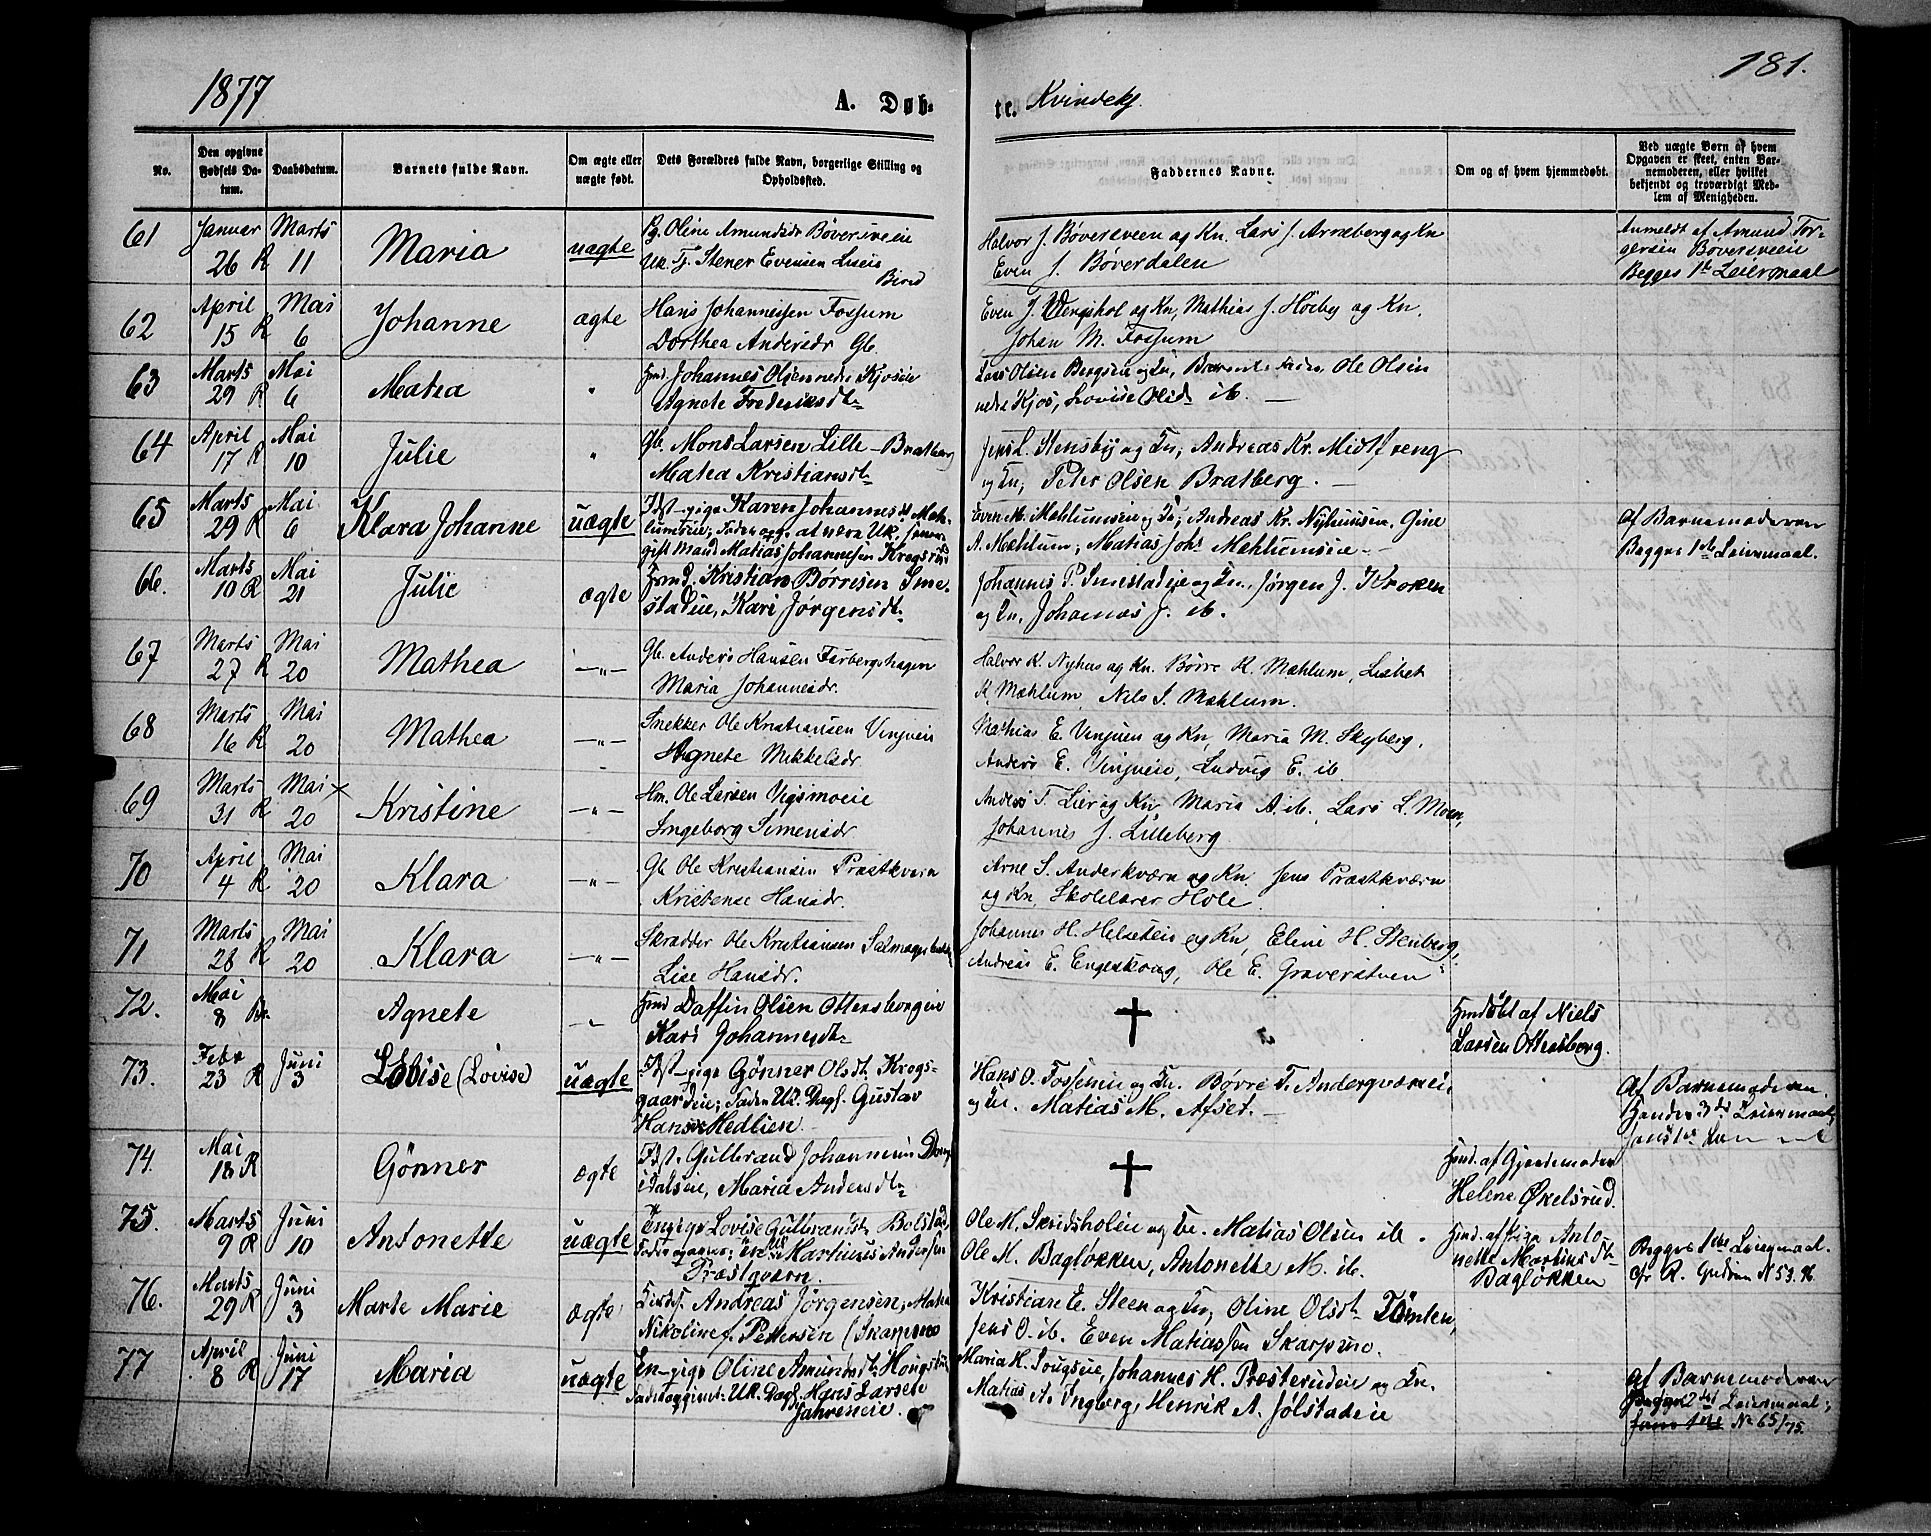 1877
A. Døb-
te. Kvindekj.
181.
No.
Den opgivne Fødsels Da-tum.
Daabsdatum.
Barnets fulde Navn.
Om ægte eller uægte født.
Dets Forældres fulde Navn, borgerlige Stilling og Opholdssted.
Faddernes Navne.
Om og af hvem hjemmedøbt.
Ved uægte Børn af hvem Opgaven er skeet, enten Bar-nemoderen, eller hvilket bekjendt og troværdigt Med-lem af Menigheden.
61 Januar 26 R Marts 11 Maria uægte
Pg. Oline Amundsdr Bøversveeie
Uk. Tj. Stener Evensen
Bired
Halvor J. Bøversveen og Kn. Lars J. Arneberg og Kn
Even J. Bøverdalen
Anmeldt af Amund Tor-
gersen Bøversveeie
Begges 1ste Leiermaal
62 April 15 R Mai 6 Johanne ægte
Hans Johannessen Fossum
Dorthea Andersdr Gb.
Even J. og Kn, Mathias J. Høeby og Kn.
Johan M. Fossum
63 Marts 29 R Mai 6 Matea "
Johannes Olsen nedre Kjoseie
Agnete Frederiksdt.
Lars Olsen Bergseie og Ku, Barnets Fader, Ole Olsen
nedre Kjos, Lovise ib.
64 April 17 R Mai 10 Julie "
Gb. Mons Larsen Lille-Bratberg
Matea Kristiansdt.
Jens L. Stensby og Ku, Andreas Kr. Midtseng
og Ku, Peter Olsen Bratberg.
65 Marts 29 R Mai 6 Klara Johanne uægte
Idst-pige Karen Johannesdt Mæh-
lumseie; Faderopg. at være Uk.
gift Mand Matias Johannesen
Even M. Mæhlumseie og Ku, Andreas Kr. Nyhuusen, Gine
A. Mæhlum; Matias Johs Mæhlumseie.
Af Barnemoderen
Begges 1ste Leiermaal.
66. Marts 10 R Mai 21 Julie ægte
Kristian Børresen Sme-
stadeie, Kari Jørgensdt.
Johannes P. Smestadeie og Ku, Jørgen J. Kroken
og Ku, Johannes J. ib.
67 Marts 27 R Mai 20 Mathea -"-
Gb. Anders Hansen Farbergshagen
Maria Johannesdr.
Halvor K. Nyhus og Kn. Børre K. Mæhlum, Lisbet
K. Mæhlum, Nils S. Mæhlum.
68 Marts 16 R Mai 20 Mathea -"-
Snekker Ole Kristiansen Vinjueie
Agnete Mikkelsdr
Mathias E. Vinjueie og Kn, Maria M. Skyberg,
Anders E. Vinjueie, Ludvig E. ib.
69 Marts 31 R Mai 20 × Kristine -"-
Hm. Ole Larsen Vigsmoeie
Ingeborg Simensdr
Anders T. Lier og Kn, Maria A. ib., Lars L. Moen,
Johannes J. Lilleberg
70 April 4 R Mai 20 Klara -"-
Gb Ole Kristiansen Præstkværn
Kristense Hansdr.
Arne S. Anderkværn og Kn. Jens Præstkværn
og Kn, Skolelærer Hole.
71 Marts 28 R Mai 20 Klara -"-
Skrædder Ole Kristiansen
Lise Hansdr.
Johannes H. Helseteie og Kn, Eline H. Stenberg,
Andreas E. Engeskoug, Ole E. Graverstuen
72. Mai 8 Agnete "
Daffin Olsen Ottersborgeie
Kari Johannesdt.
†
Hmdøbt af Niels
Larsen Ottersborg.
73. Febr 23 R Juni 3 Lovise (Lovise) uægte
Idst-pige Gönner Olsdt. Krogs-
gaardeie; Fader Uk. Dagl. Gustav
Hansen Medlien.
Hans O. Fosseneie og Ku. Børre T. Andergværneie
og Ku. Matias M. Afset.
Af Barnemoderen.
74. Mai 18 R Gönner ægte
Idst. Gulbrand Johannesen
dalseie, Maria Andersdt.
†
Hmd. af Gjordemoder
Helene Økelsrud.
75. Marts 9 R Juni 10 Antonette uægte
En pige Lovise Gulbrandsdt. Bolstad,
Martinus Andersen
Præstqværn.
Ole M. Skridsholeie og Ku. Matias Olsen ib.
Ole M. Bagløkken, Antonette M. ib.
Hmd. af Pige Anto-
nette Martinsdt.
Bagløkken
Begges 1ste Leiermaal.
cfr R. N 53. 76
76. Marts 29 R Juni 3 Marte Marie ægte
Andreas Jørgensen, Matea
Nikoline f. Pettersen (Skarpsno
Kristian E. Steen og Ku, Oline Olsdt. Tömten,
Jens O. ib. Even Matiassen Skarpsno.
77 April 8 R Juni 17 Maria uægte
En-pige Oline Amundsdt.
Uk. Dagl. Hans Larsen
Maria H. Sougseie, Johannes H. Præsterudeie og Ku.
Matias A. Engberg, Henrik A. Jølstadeie
Af Barnemoderen
2det Leiermaal,
No 65/75.